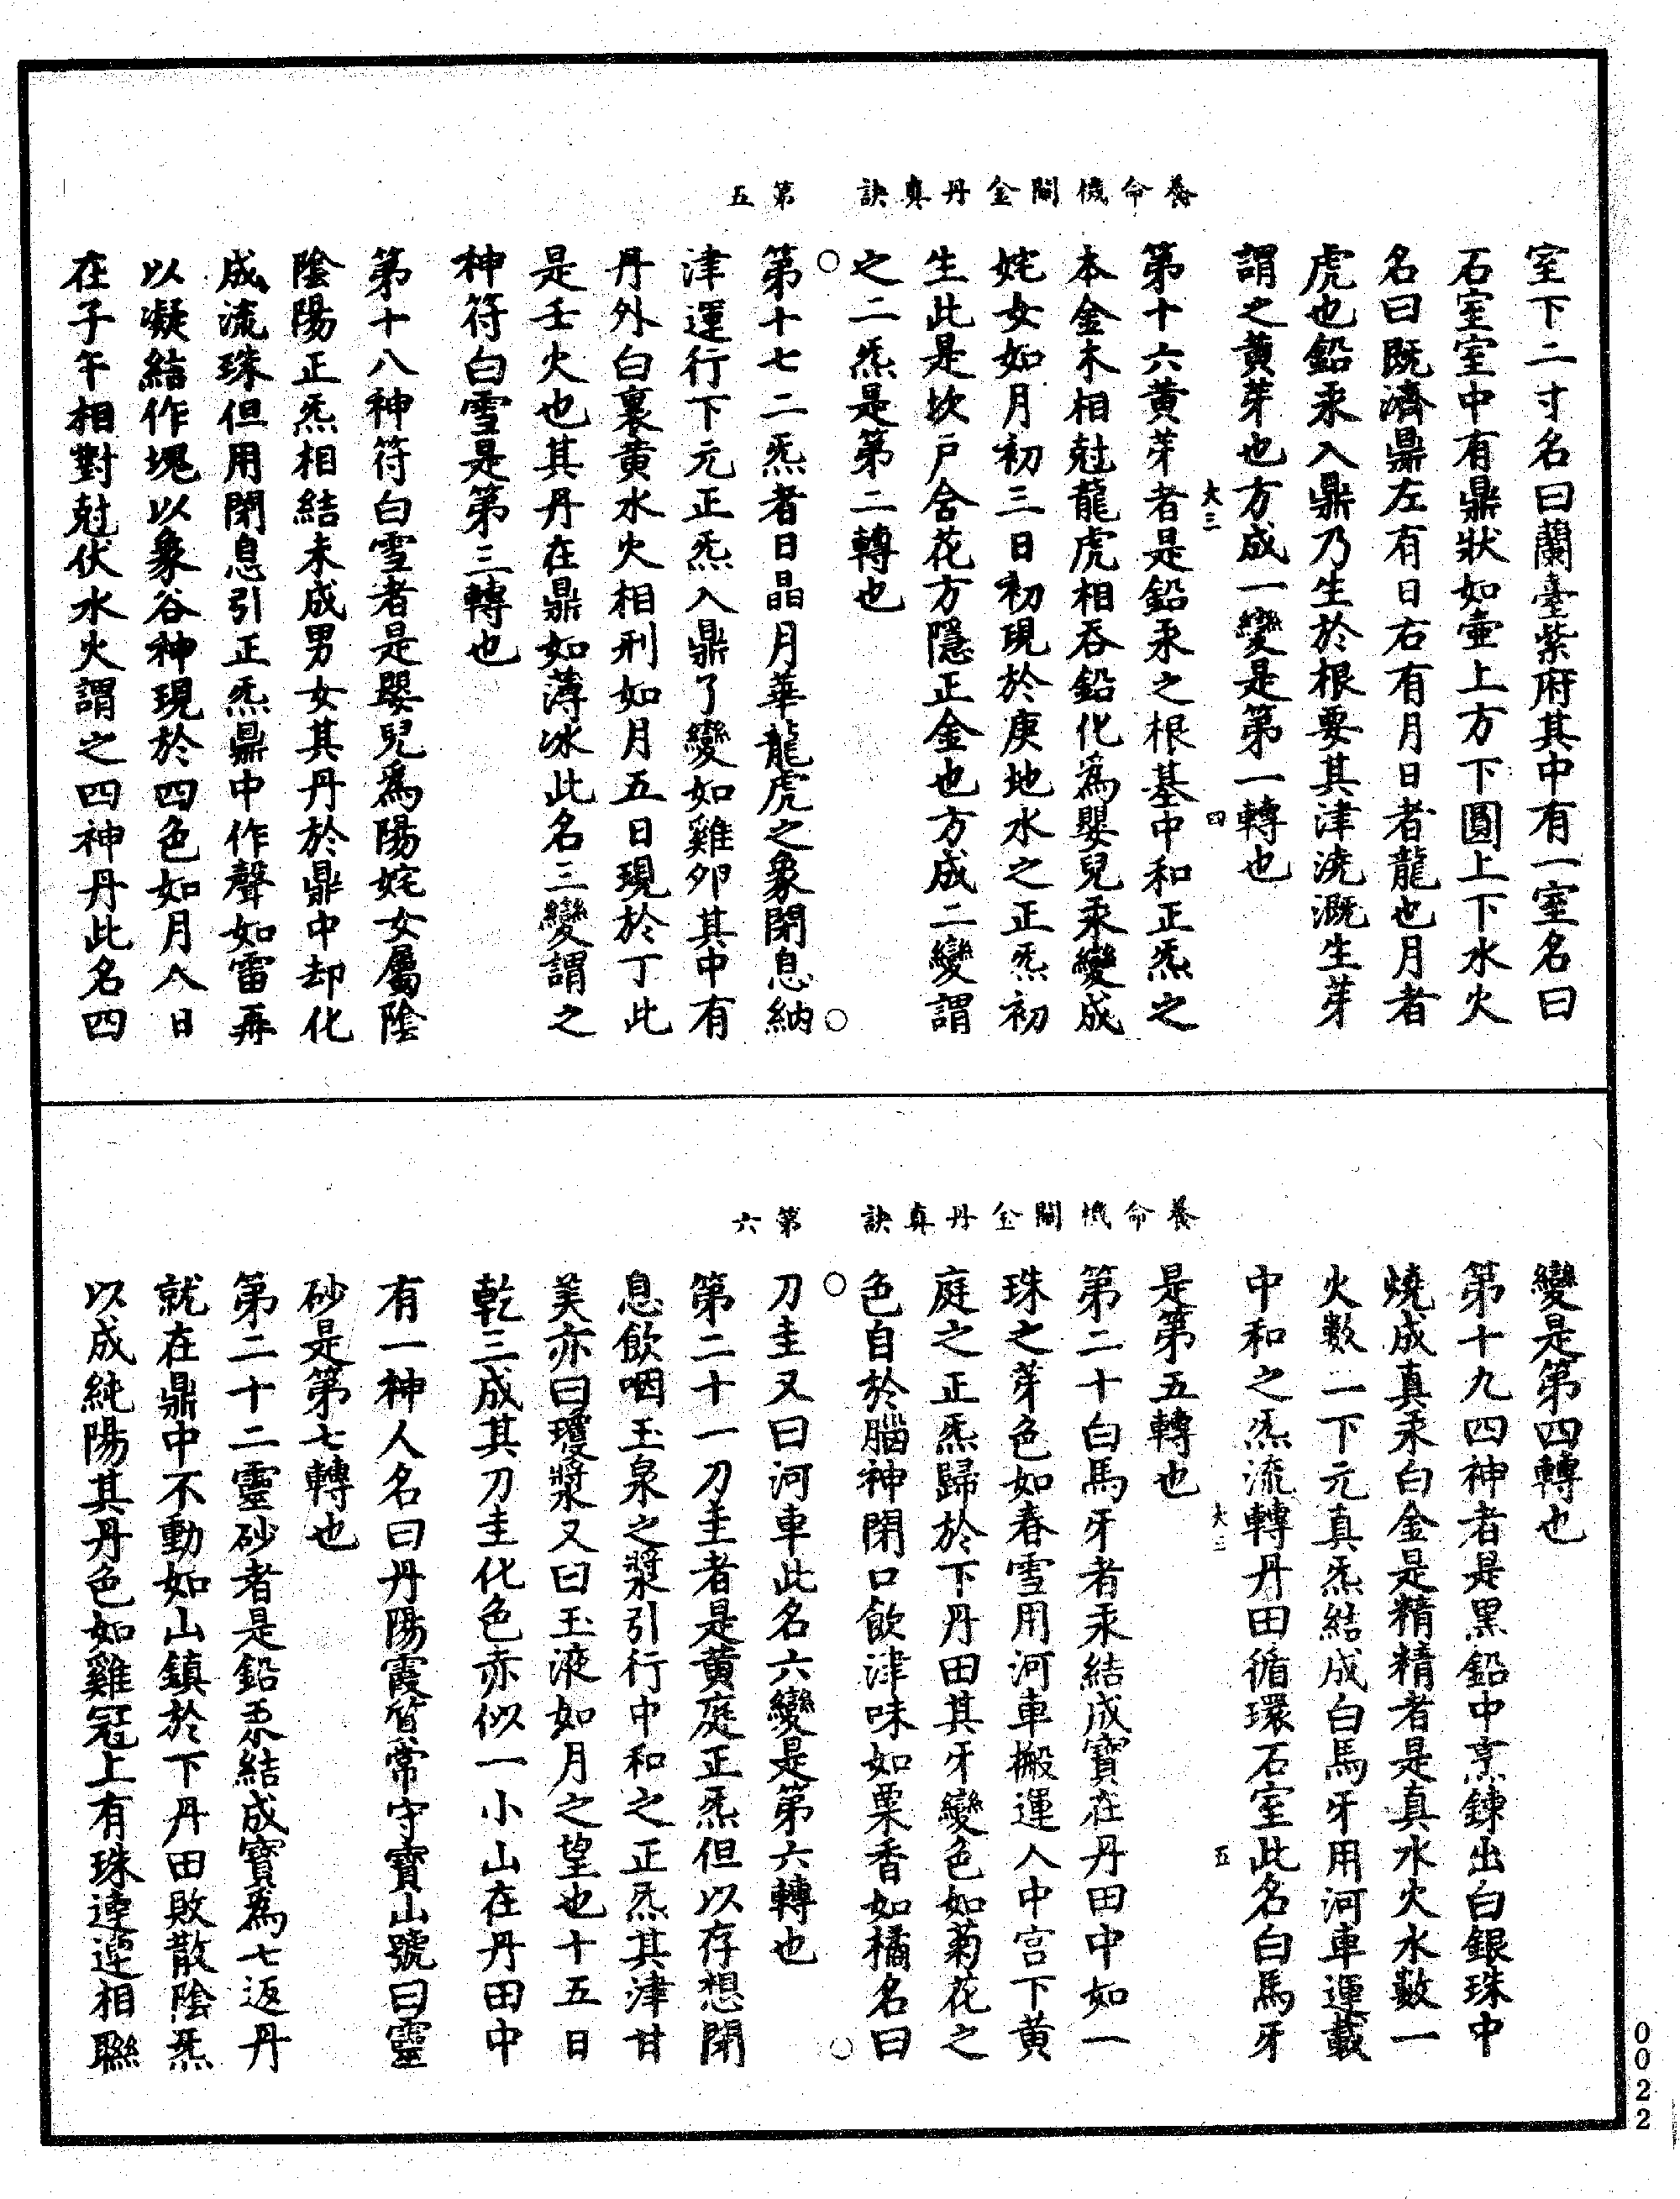 養命機關金丹真訣　第五
室下二寸名曰蘭臺紫府其中有一室名曰
石室室中有鼎狀如壷上方下圓上下水火
名曰既濟鼎左有日右有月日者龍也月者
虎也鉛汞入鼎乃生於根要其津澆溉生芽
謂之黃芽也方成一變是第一轉也
大三　四
第十六黃芽者是鉛汞之根基中和正炁之
本金木相尅龍虎相吞鉛化為嬰兒汞變成
姹女如月初三日初現於庚地水之正炁初
生此是坎户含花方隱正金也方成二變謂
之二炁是第二轉也
第十七二炁者日晶月華龍虎之象閉息納
津運行下元正炁入鼎了變如雞卵其中有
丹外白裏黃水火相刑如月五日現於丁此
是壬火也其丹在鼎如薄冰此名三變謂之
神符白雪是第三轉也
第十八神符白雪者是嬰兒為陽姹女屬陰
陰陽正炁相結未成男女其丹於鼎中却化
成流珠但用閉息引正炁鼎中作聲如雷再
以凝結作塊以象谷神現於四色如月八日
在子午相對尅伏水火謂之四神丹此名四
養命機關金丹真訣　第六
變是第四轉也
第十九四神者是黑鉛中烹鍊出白銀珠中
燒成真汞白金是精精者是真水火水數一
火數一下元真炁結成白馬牙用河車運載
中和之炁流轉丹田循環石室此名白馬牙
大三　五
是第五轉也
第二十白馬牙者汞結成寶在丹田中如一
珠之芽色如春雪用河車搬運入中宮下黃
庭之正炁歸於下丹田其牙變色如菊花之
色自於腦神閉口飲津味如栗香如橘名曰
刀圭又曰河車此名六變是第六轉也
第二十一刀圭者是黃庭正炁但以存想閉
息飲咽玉泉之漿引行中和之正炁其津甘
美亦曰瓊漿又曰玉液如月之望也十五日
乾三成其刀圭化色赤似一小山在丹田中
有一神人名曰丹陽霞質常守寶山號曰靈
砂是第七轉也
第二十二靈砂者是鉛汞結成寶為七返丹
就在鼎中不動如山鎮於下丹田敗散陰炁
以成純陽其丹色如雞冠上有珠連連相聯
0022